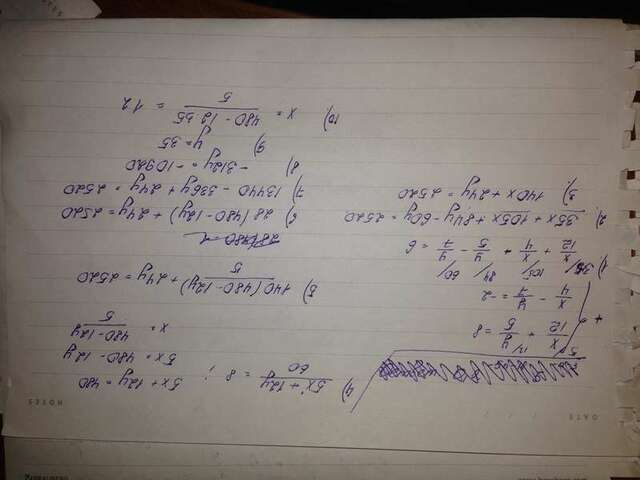 DATE
NOTES
5/ 12/
x/12 + y/5 = 8
+
x/4 - y/7 = -2
1) 35/ 105/ 84/ 60/
x/12 + x/4 + y/5 - y/7 = 6
2) 35x + 105x + 84y - 60y = 2520
3) 140x + 24y = 2520
4) (5x + 12y)/60 = 8 ; 5x + 12y = 480
5x = 480 - 12y
x = (480 - 12y)/5
5) 140(480 - 12y)/5 + 24y = 2520
6) 28(480 - 12y) + 24y = 2520
7) 13440 - 336y + 24y = 2520
8) -312y = -10920
9) y = 35
10) x = (480 - 12·35)/5 = 12